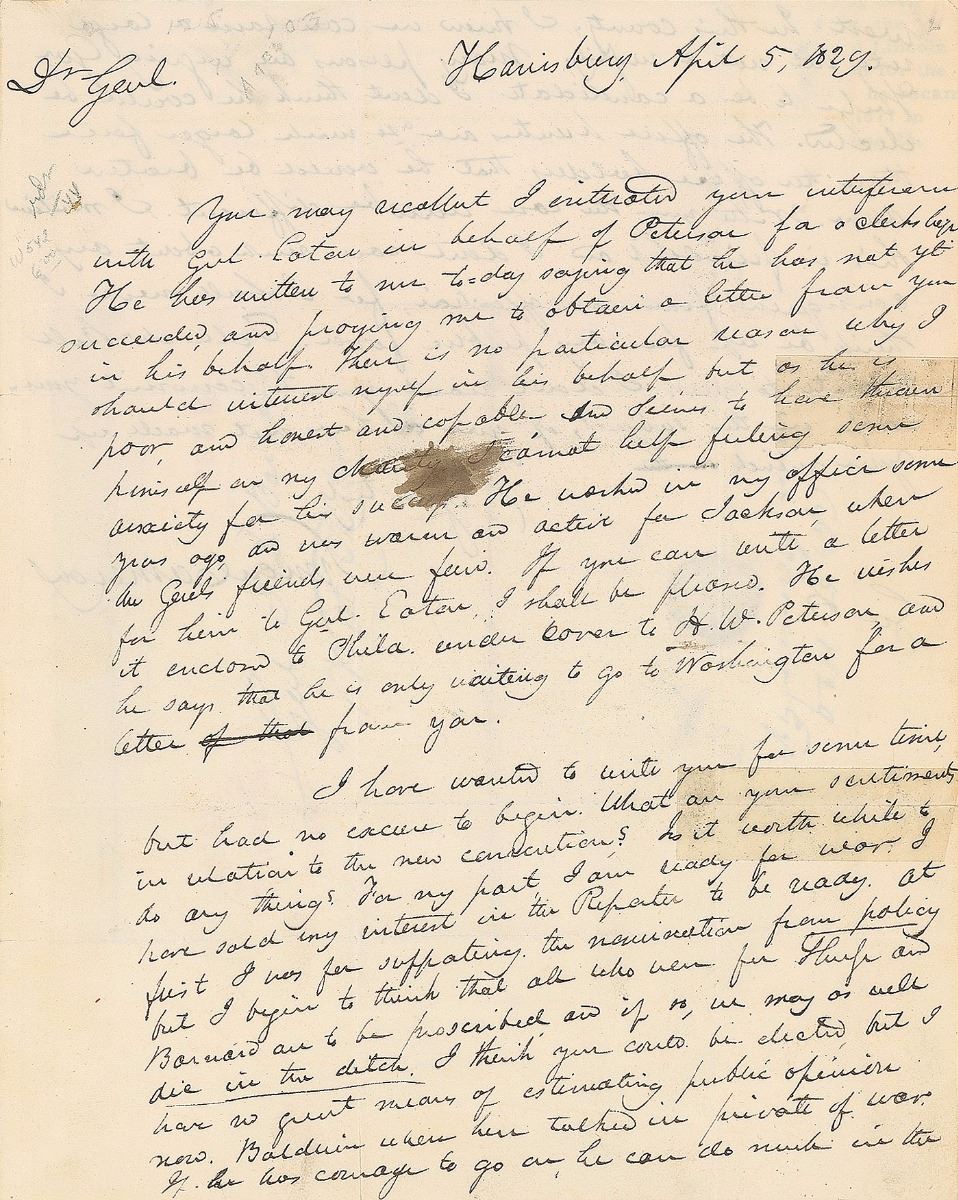 Harrisburg, April 5, 1829.
Dr Genl.
You may recollect I entreated your interference
with Genl. Eaton in behalf of Peterson for a clerkship
He has written to me to=day saying that he has not yet
succeeded, and praying me to obtain a letter from you
in his behalf. There is no particular reason why I
should interest myself in his behalf but as he is
poor, and honest and capable and seems to have thrown
himself on my I cannot help feeling some
anxiety for his success. He worked in my office some
years ago, and was warm and active for Jackson, when
the Genls friends were few. If you can write a letter
for him to Genl. Eaton, I shall be pleased. He wishes
it enclosed to Phila. under cover to H. W. Peterson, and
he says that he is only waiting to go to Washington for a
letter of that from you.
I have wanted to write you for some time,
but had no excuse to begin. What are your sentiments
in relation to the new convention? Is it worth while to
do any thing? For my part, I am ready for war. I
have sold my interest in the Reporter to be ready. At
first I was for supporting the nomination from policy
but I begin to think that all who were for and
Barnard are to be proscribed, and if so, we may as well
die in the ditch. I think you could be elected, but I
have no great means of estimating public opinion
now. Baldwin when here talked in private of war.
If he has courage to go on, he can do much in the